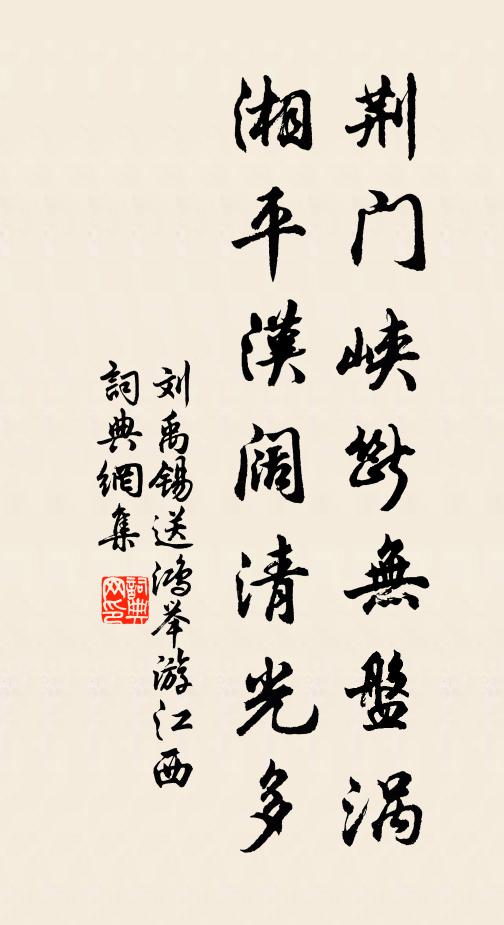 荆门峡断無盤涡
湘平漢阔清光多
刘禹锡送鸿举游江西
詞典網集
詞典
网印